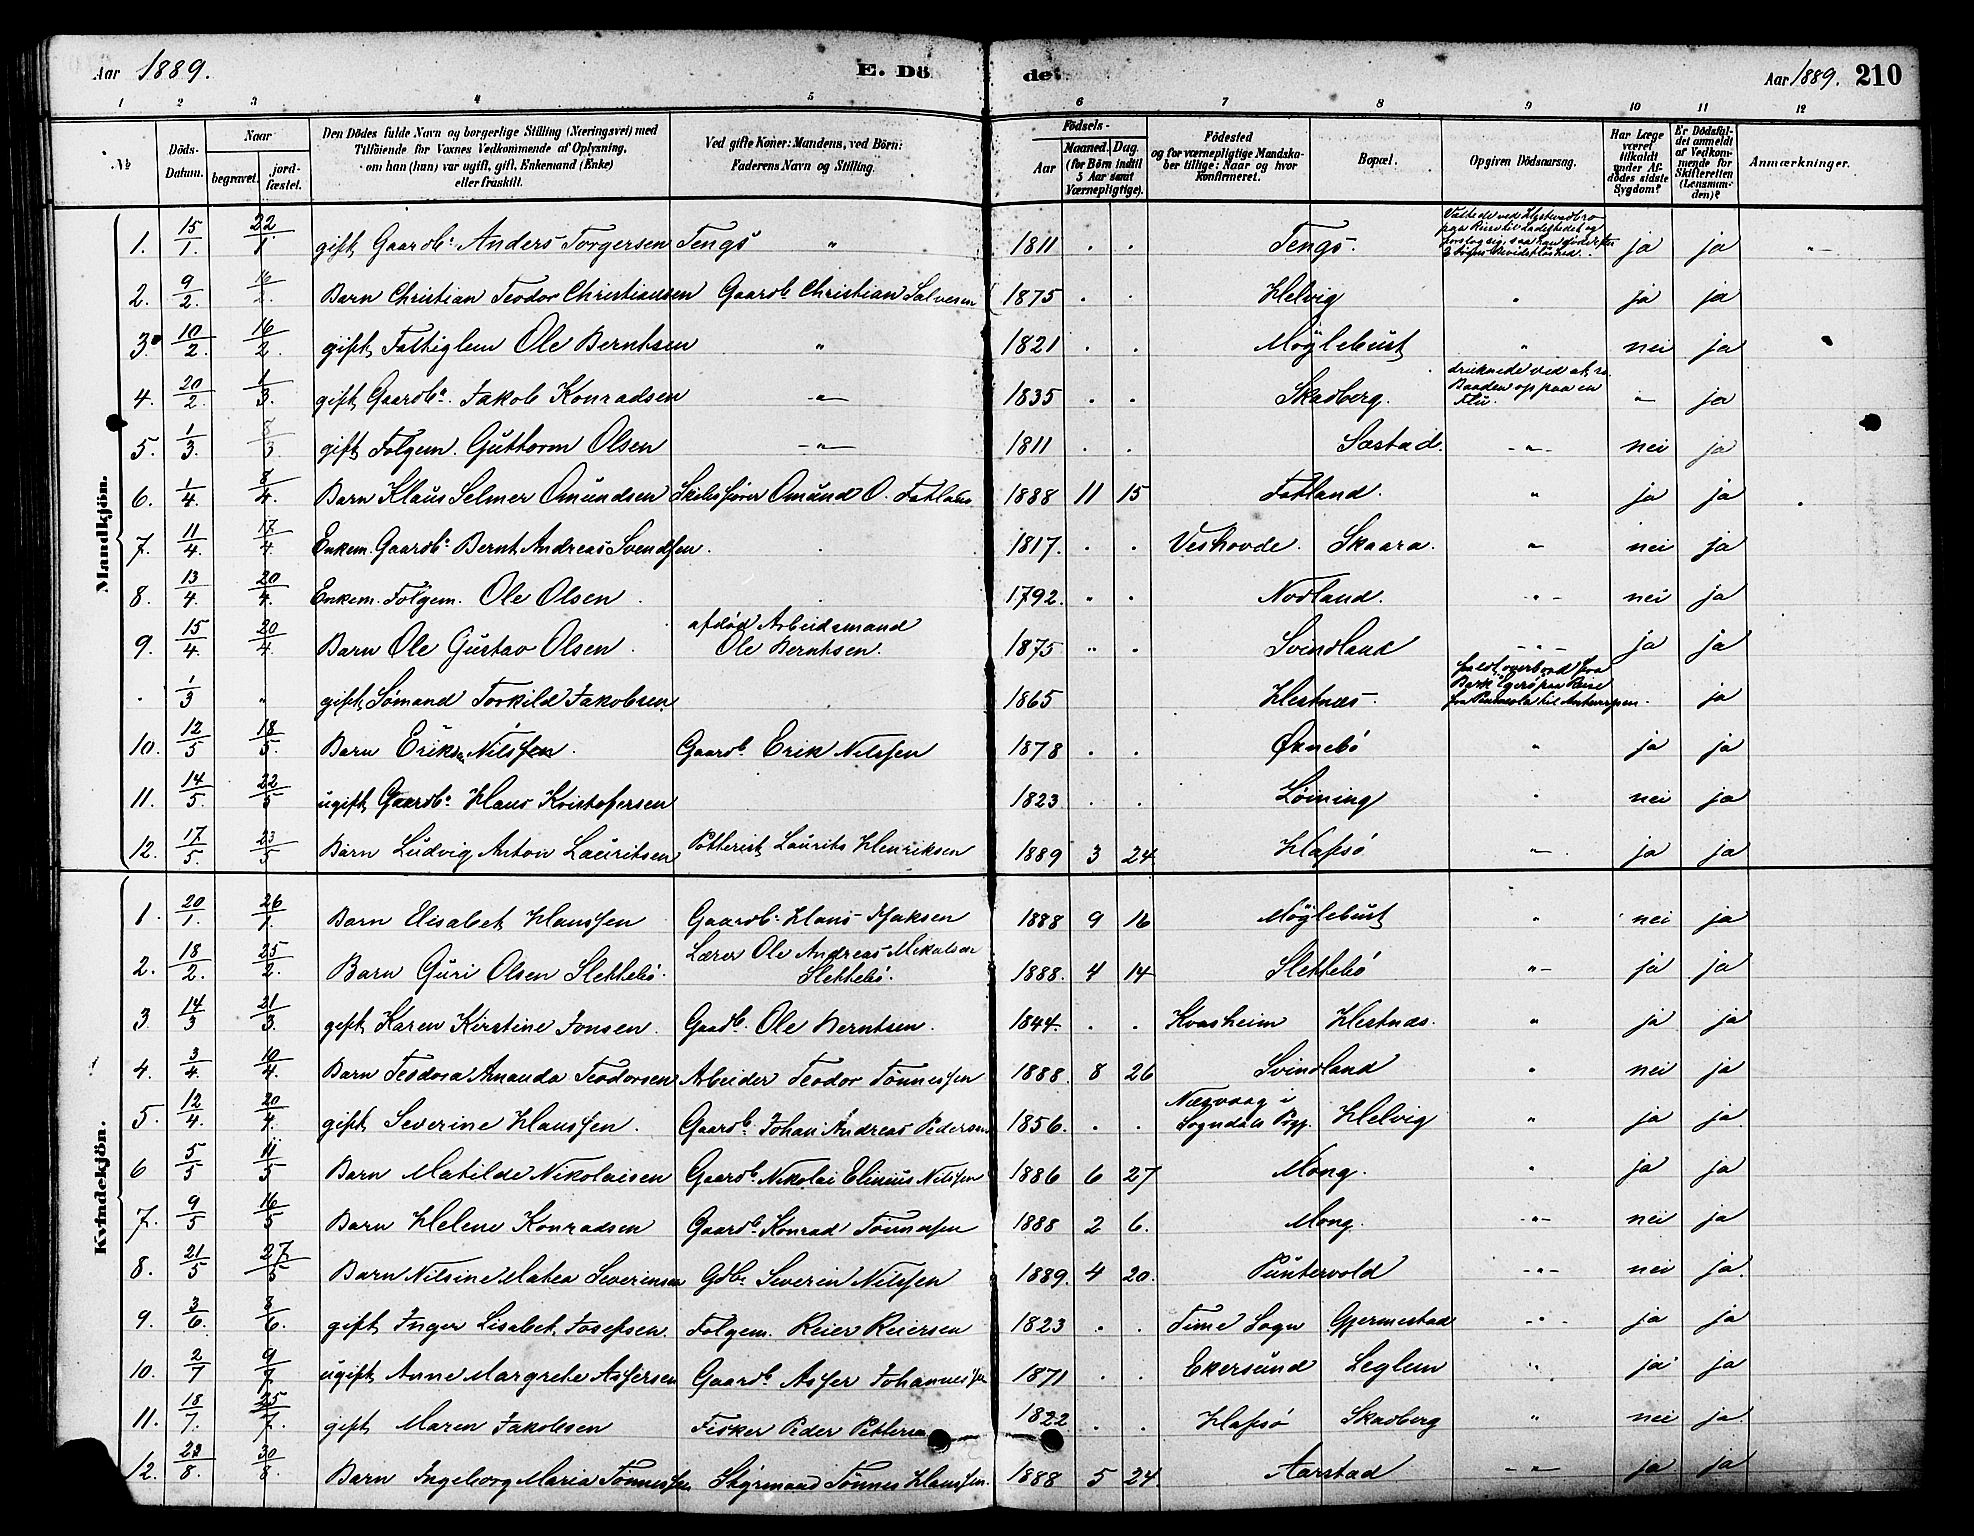 Aar 1889. E. Dö de. Aar 1889. 210
1 2 3 4 5 6 7 8 9 10 11 12
№ Döds-Datum. Naar begravet. jordfæstet. Den Dödes fulde Navn og borgerlige Stilling (Næringsvei) med Tilföiende for Voxnes Vedkommende af Oplysning, om han (hun) var ugift, gift, Enkemand (Enke) eller fraskilt. Ved gifte Koner: Mandens, ved Börn: Faderens Navn og Stilling. Födsels- Aar Maaned. Dag. (for Börn indtil 5 Aar samt Værnepligtige). Födested og for værnepligtige Mandskaber tillige: Naar og hvor konfirmeret. Bopæl. Opgiven Dödsaarsag. Har Læge været tilkaldt under Afdödes sidste Sygdom? Er Dödsfaldet anmeldt af Vedkommende for Skifteretten (Lensmanden)? Anmærkninger.
Mandkjön.
1. 15/1. 22/1. gift Gaardb. Anders Torgersen Tengs " 1811 . . Tengs. ja ja "
2. 9/2. 16/2. Barn Christian Teodor Christiansen Gaardb. Christian Salvesen 1875 . . Helvig " ja ja
3. 10/2. 16/2. gift Fattiglem Ole Berntsen " 1821 . . Möglebust " nei ja
4. 20/2. 1/3. gift Gaardb. Jakob Konradsen " 1835 . . Skadberg. druknede ved at ro Baaden op paa en Flu. " ja
5. 1/3. 8/3. gift Folgem. Guttorm Olsen " 1811 . . Sæstad. " nei ja
6. 1/4. 8/4. Barn Klaus Selmer Omundsen Skibsfører Omund O. Fatland 1888 11 15 Fatland. " ja ja
7. 11/4. 17/4. Enkem. Gaardb. Bernt Andreas Svendsen. 1817. . . Veshovde. Skaara. " nei ja
8. 13/4. 20/4. Enkem. Folgem. Ole Olsen 1792. " . Nodland. " nei ja
9. 15/4. 20/4. Barn Ole Gustav Olsen. afdød Arbeidsmand Ole Berntsen. 1875 " . Svindland " ja ja
" 1/3 " gift Sømand Torkild Jakobsen 1865 Hestnæs. faldt overbord fra Bark Ægerø paa Reise fra Pensacola til Antwerpen. ja
10. 12/5 18/5. Barn Erik Nilssen. Gaardb. Erik Nilssen 1878 . . Øknebö " ja ja
11. 14/5. 22/5 ugift Gaardb. Hans Kristofersen 1823 . . Löining " nei ja
12. 17/5. 23/5 Barn Ludvig Anton Lauritsen Potterist Laurits Henriksen 1889 3 24 Hafsö " ja ja
Kvindekjön.
1. 20/1. 26/1. Barn Elisabet Hanssen Gaardb. Hans Isaksen 1888 9 16 Möglebust " nei ja
2. 18/2. 25/2. Barn Guri Olsen Slettebö. Lærer Ole Andreas Mikalsen Slettebö. 1888. 4 14 Slettebö " ja ja
3 14/3 21/3. gift Karen Kirstine Jonsen. Gaadb. Ole Berntsen. 1844. . . Kvasheim Hestnæs. " ja ja
4. 3/4. 10/4. Barn Teodora Amanda Teodorsen Arbeider Teodor Tönnessen 1888. 8 26 Svindland " nei ja
5. 12/4. 20/4. gift Severine Hanssen. Gaardb. Johan Andreas Pedersen 1856. . . i Sogndals Pgj. Helvig " ja ja
6 5/5 11/5 Barn Matilde Nikolaisen Gaardb. Nikolai Elinius Nilssen 1886 6 27 Mong. " ja ja
7. 9/5 16/5 Barn Helene Konradsen Gaardb. Konrad Tönnessen 1888 2 6. Mong. " nei ja
8. 21/5 27/5 Barn Nilsine Matea Severinsen Gdb. Severin Nilssen 1889. 4 20. Puntervold " nei ja.
9. 3/6 8/6. gift Inger Lisabet Josefsen. Folgem. Reier Reiersen 1823 . . Time Sogn Gjermestad " ja ja
10. 2/7 9/7 ugift Anne Margrete Assersen Gaardb. Asser Johannessen 1871 . . Ekersund Leglem " ja ja
11. 18/7. 25/7. gift Maren Jakobsen Fisker Peder Pettersen 1822 . . Hafsö Skadberg " nei ja.
12. 23/8. 30/8. Barn Ingeborg Maria Tönnessen Styrmand Tönnes Hanssen. 1888 5 24. Aarstad " ja ja